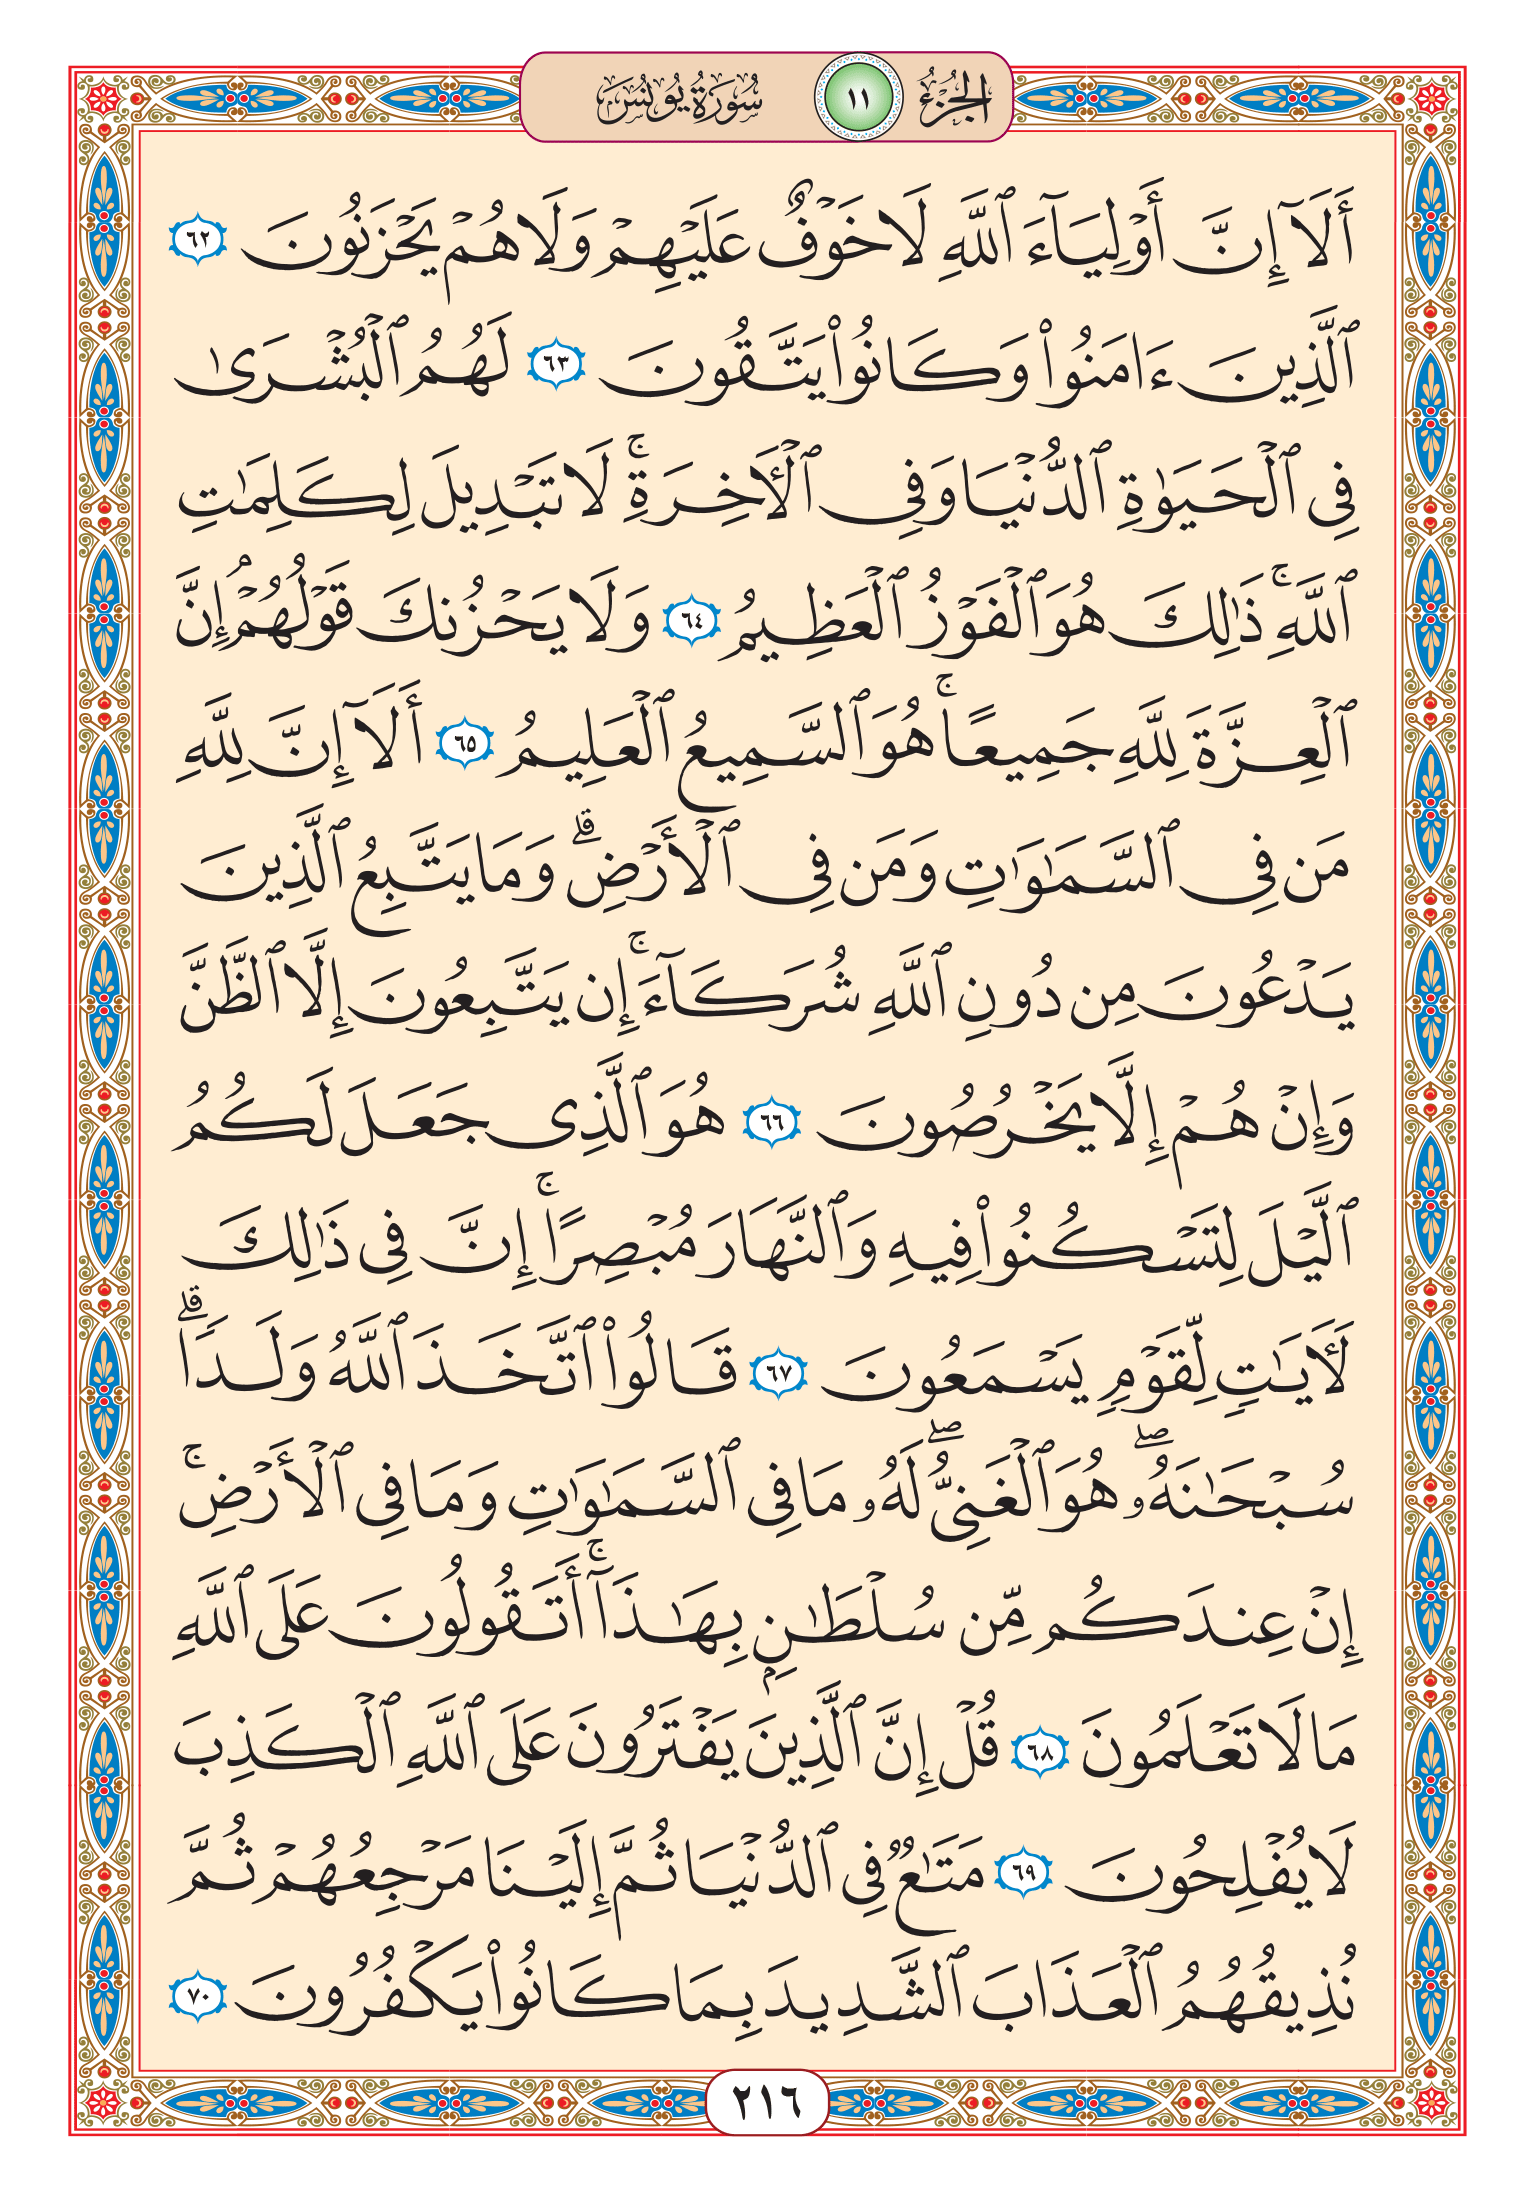 الجُزْءُ ١١ سُورَةُ يُونُسَ
أَلَآ إِنَّ أَوْلِيَآءَ ٱللَّهِ لَا خَوْفٌ عَلَيْهِمْ وَلَا هُمْ يَحْزَنُونَ ٦٢
ٱلَّذِينَ ءَامَنُوا۟ وَكَانُوا۟ يَتَّقُونَ ٦٣ لَهُمُ ٱلْبُشْرَىٰ
فِى ٱلْحَيَوٰةِ ٱلدُّنْيَا وَفِى ٱلْأَخِرَةِ ۚ لَا تَبْدِيلَ لِكَلِمَٰتِ
ٱللَّهِ ۚ ذَٰلِكَ هُوَ ٱلْفَوْزُ ٱلْعَظِيمُ ٦٤ وَلَا يَحْزُنكَ قَوْلُهُمْ ۘ إِنَّ
ٱلْعِزَّةَ لِلَّهِ جَمِيعًا ۚ هُوَ ٱلسَّمِيعُ ٱلْعَلِيمُ ٦٥ أَلَآ إِنَّ لِلَّهِ
مَن فِى ٱلسَّمَٰوَٰتِ وَمَن فِى ٱلْأَرْضِ ۗ وَمَا يَتَّبِعُ ٱلَّذِينَ
يَدْعُونَ مِن دُونِ ٱللَّهِ شُرَكَآءَ ۚ إِن يَتَّبِعُونَ إِلَّا ٱلظَّنَّ
وَإِنْ هُمْ إِلَّا يَخْرُصُونَ ٦٦ هُوَ ٱلَّذِى جَعَلَ لَكُمُ
ٱلَّيْلَ لِتَسْكُنُوا۟ فِيهِ وَٱلنَّهَارَ مُبْصِرًا ۚ إِنَّ فِى ذَٰلِكَ
لَأَيَٰتٍ لِّقَوْمٍ يَسْمَعُونَ ٦٧ قَالُوا۟ ٱتَّخَذَ ٱللَّهُ وَلَدًا ۗ
سُبْحَٰنَهُۥ ۖ هُوَ ٱلْغَنِىُّ ۖ لَهُۥ مَا فِى ٱلسَّمَٰوَٰتِ وَمَا فِى ٱلْأَرْضِ ۚ
إِنْ عِندَكُم مِّن سُلْطَٰنٍۭ بِهَٰذَآ ۚ أَتَقُولُونَ عَلَى ٱللَّهِ
مَا لَا تَعْلَمُونَ ٦٨ قُلْ إِنَّ ٱلَّذِينَ يَفْتَرُونَ عَلَى ٱللَّهِ ٱلْكَذِبَ
لَا يُفْلِحُونَ ٦٩ مَتَٰعٌ فِى ٱلدُّنْيَا ثُمَّ إِلَيْنَا مَرْجِعُهُمْ ثُمَّ
نُذِيقُهُمُ ٱلْعَذَابَ ٱلشَّدِيدَ بِمَا كَانُوا۟ يَكْفُرُونَ ٧٠
٢١٦